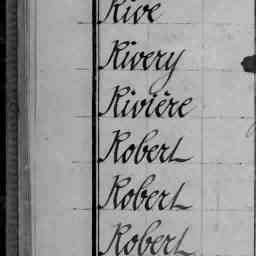 Rive
Rivery
Rivière
Robert
Robert
Robert